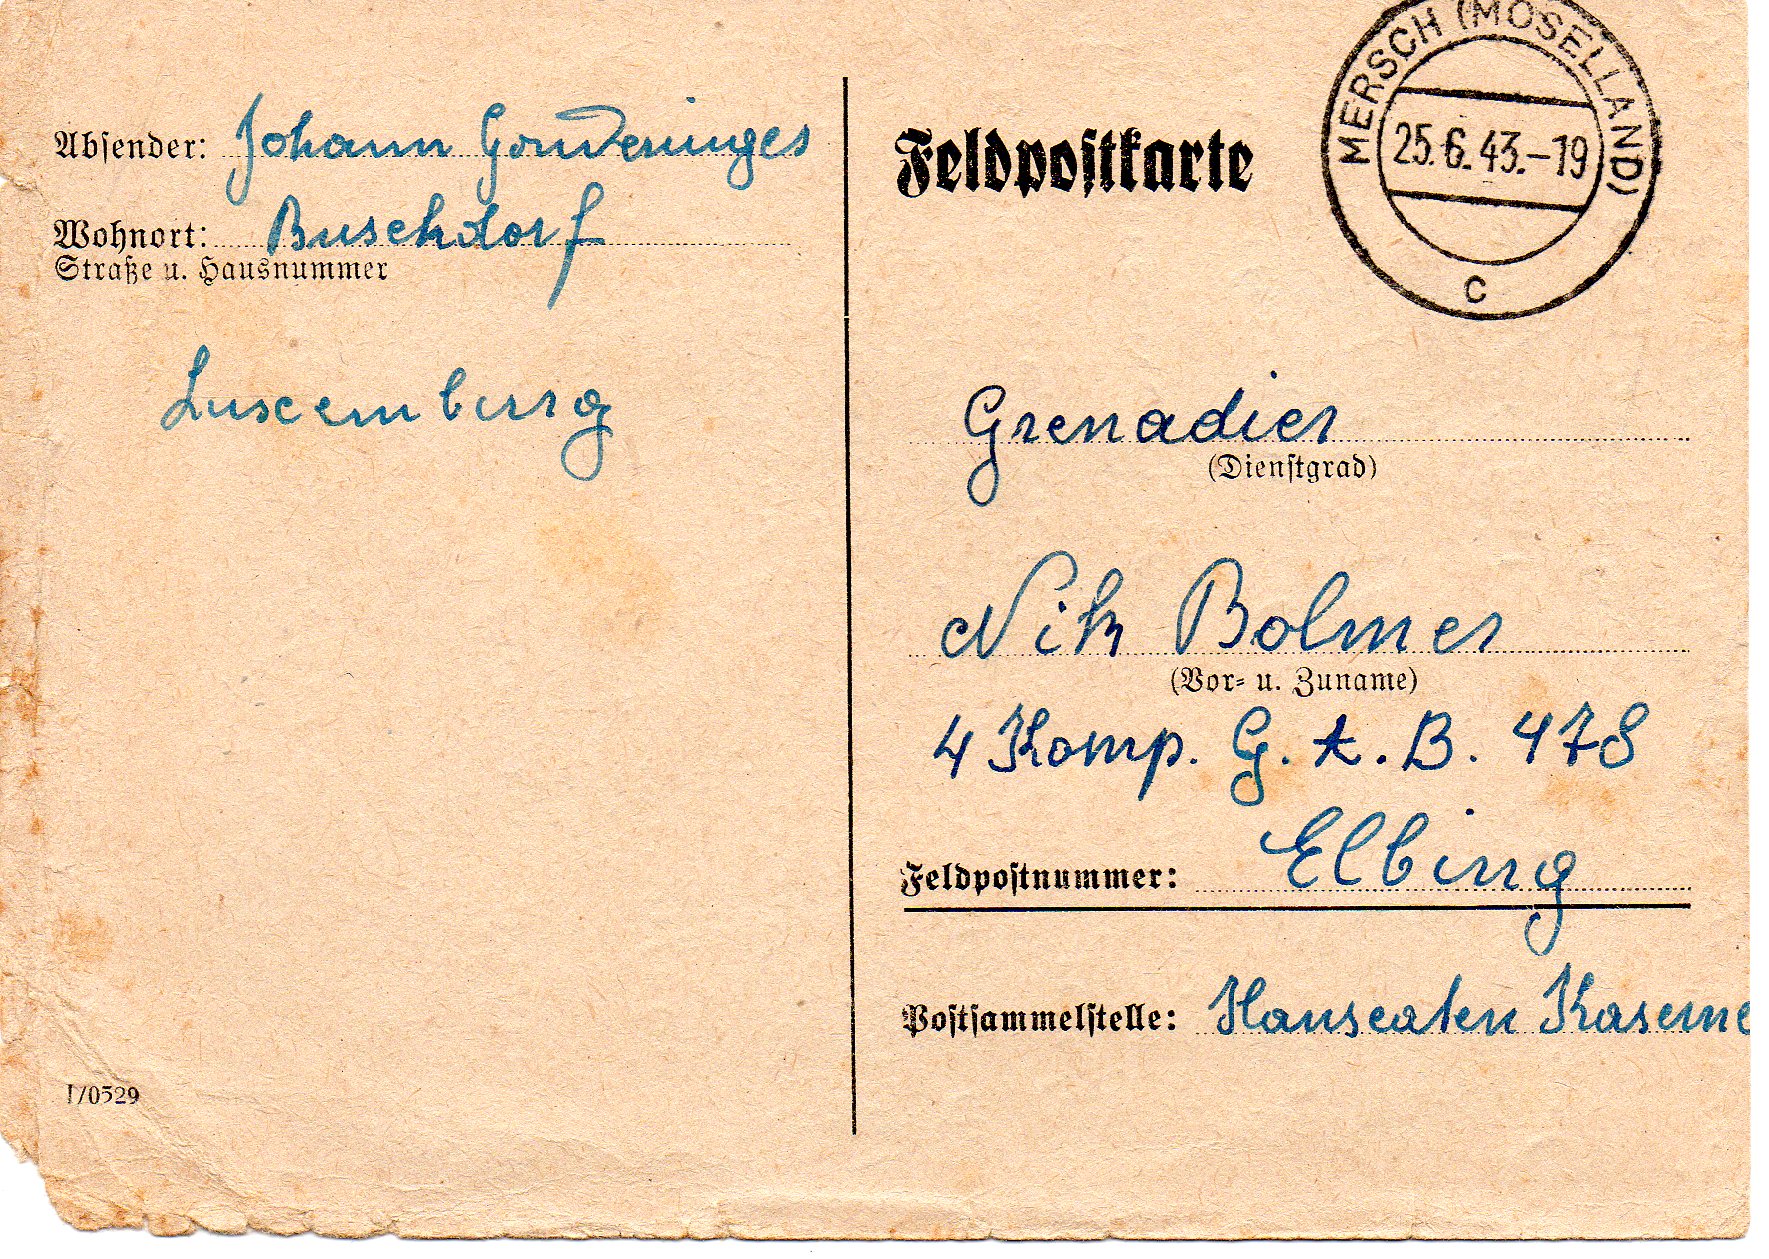 Absender: Johann Gonderinges
Wohnort: Buschdorf
Straße u. Hausnummer
Luxemburg
I/0529
Feldpostkarte
MERSCH (MOSELLAND)
25.6.43.-19
c
Grenadier
(Dienstgrad)
Nik Bolmer
(Vor- u. Zuname)
4 Komp. G. A. B. 478
Feldpostnummer: Elbing
Postsammelstelle: Hanseaten Kaserne